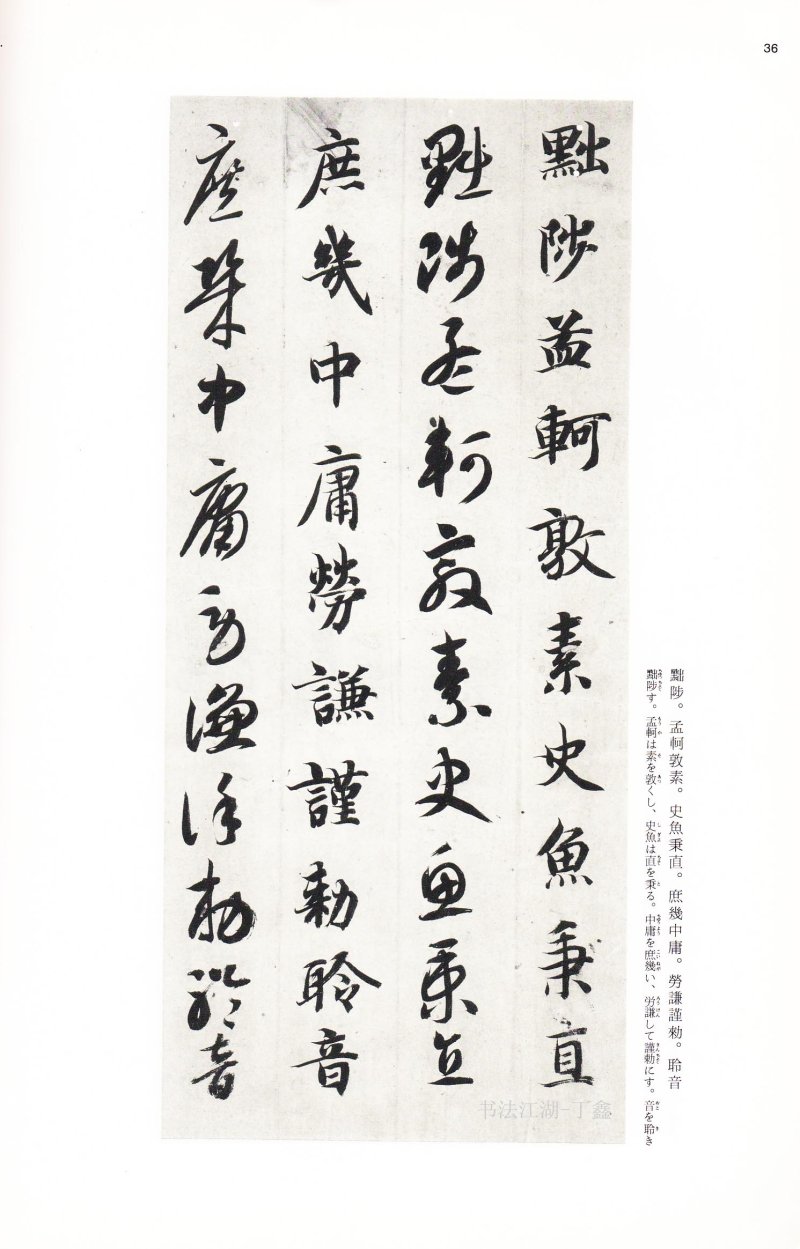 36
黜陟。孟軻敦素。史魚秉直。庶幾中庸。勞謙謹勅。聆音
黜陟す。孟軻は素を敦くし、史魚は直を秉る。中庸を庶幾い、労謙して謹勅にす。音を聆き
黜陟孟軻敦素史魚秉直
黜陟孟軻敦素史魚秉直
庶幾中庸勞謙謹勅聆音
庶幾中庸勞謙謹勅聆音
书法江湖-丁鑫